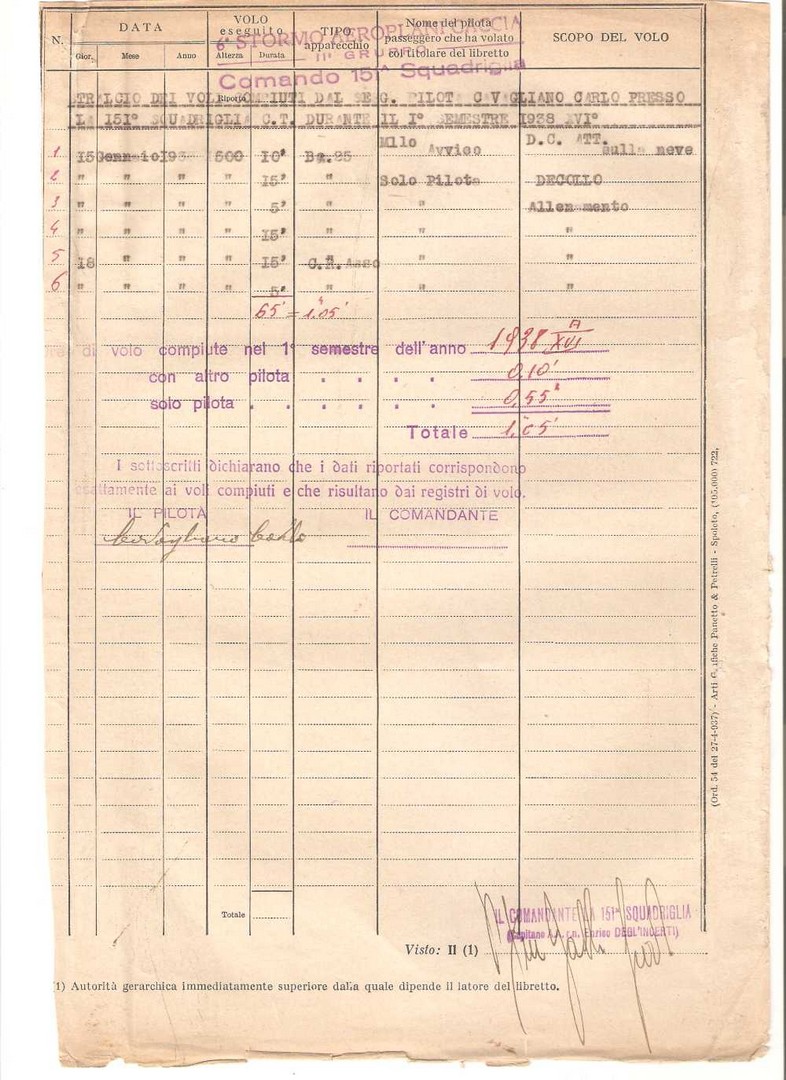 N.
DATA
VOLO
eseguito
TIPO
apparecchio
Nome del pilota
passeggero che ha volato
col titolare del libretto
SCOPO DEL VOLO
Gior.
Mese
Anno
Altezza
Durata
6° STORMO AEROPLANI CACCIA
II° GRUPPO
Comando 151ª Squadriglia
Riporto
STRALCIO DEI VOLI COMPIUTI DAL SERG. PILOTA CAVAGLIANO CARLO PRESSO
LA 151° SQUADRIGLIA C.T. DURANTE IL I° SEMESTRE 1938 XVI°
1 15 Gennaio 193 500 10' Ba.25 Mllo Avvico D.C. ATT. sulla neve
2 " " " " 15' " Solo Pilota DECOLLO
3 " " " " 5' " " Allenamento
4 " " " " 15' " " "
5 18 " " " 15' C.R. Asso " "
6 " " " " 5' " " "
65' = 1.05'
di volo compiute nel 1° semestre dell'anno 1938 A XVI
con altro pilota . . . . 0,10'
solo pilota . . . . . . 0,55'
Totale 1,05'
I sottoscritti dichiarano che i dati riportati corrispondono
esattamente ai voli compiuti e che risultano dai registri di volo.
IL PILOTA
IL COMANDANTE
Cavagliano Carlo
Totale
IL COMANDANTE LA 151ª SQUADRIGLIA
(Capitano A.A. r.n. Enrico DEGL'INCERTI)
Visto: Il (1)
(1) Autorità gerarchica immediatamente superiore dalla quale dipende il latore del libretto.
(Ord. 54 del 27-4-937) - Arti Grafiche Panetto & Petrelli - Spoleto, (105.000) 722.